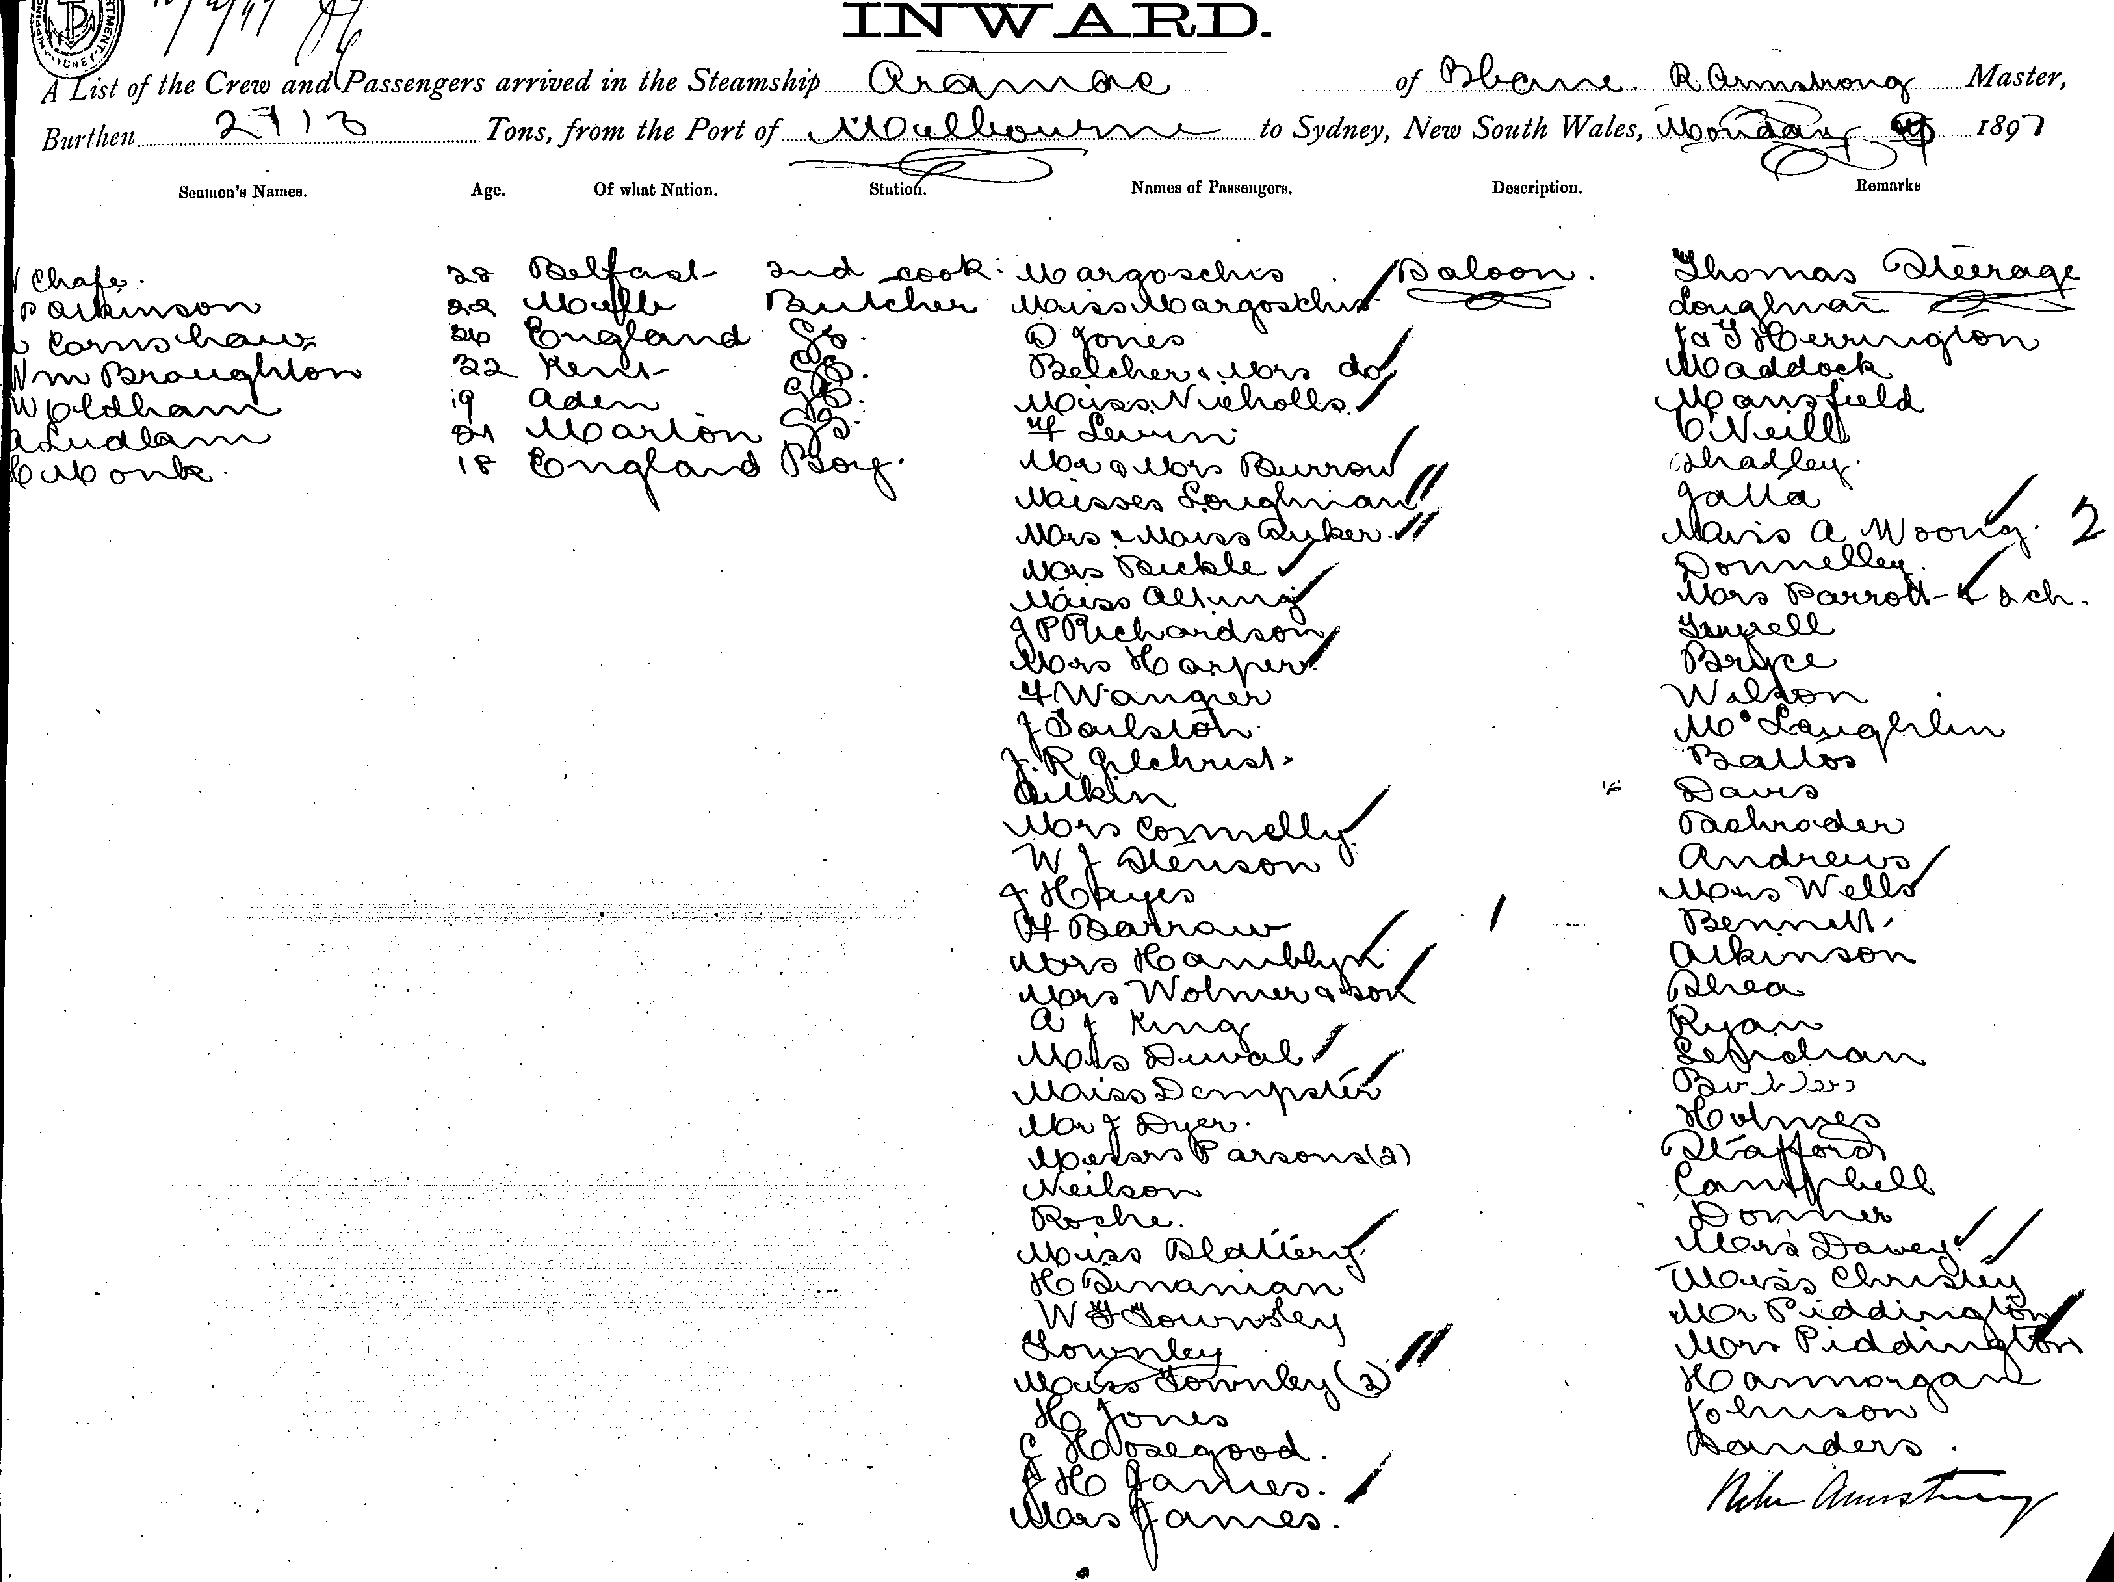 INWARD.
A List of the Crew and Passengers arrived in the Steamship Aramac of R Armstrong Master,
Burthen Tons, from the Port of Melbourne to Sydney, New South Wales, Monday 1897
Seamen's Names. Age. Of what Nation. Station. Names of Passengers. Description. Remarks
Chafe. 28 Belfast 2nd cook. Margoschis Saloon. Thomas Steerage
Parkinson 22 Butcher Miss Margoschis Loughnan
Cornshaw 26 England D Jones Herrington
Wm Broughton 22 Kent Belcher & Mrs do Maddock
W Oldham 19 Aden Miss Nicholls Mansfield
A Ludlam 21 Marton O'Neill
Monk 18 England Boy. Mr & Mrs Burrow Shadley.
Misses Loughnan
Mrs & Miss Miss A Woong. 2
Mrs Buckle Donnelley.
Miss Mrs Parrott & 2 ch.
J P Richardson
Mrs Harper Bryce
Wilson
J McLaughlin
J. R Gilchrist. Battos
Aitkin Davis
Mrs Connelly
W J Stenson Andrews
J Hayes Mrs Wells
H Barraw Bennett.
Mrs Hamblyn Atkinson
Mrs Wolmer & son Shea
A J King Ryan
Mrs Duval
Miss Dempster
Mr J Dyer. Holmes
Messrs Parsons (2) Stafford
Neilson Campbell
Roche. Donner
Miss Slattery. Mrs Davey.
H Sinanian Miss Christey
W F Townsley Mr Piddington
Townley Mrs Piddington
Miss Townley (2)
H Jones Johnson
C Hosegood. Sanders.
J H James. Armstrong
Mrs James.